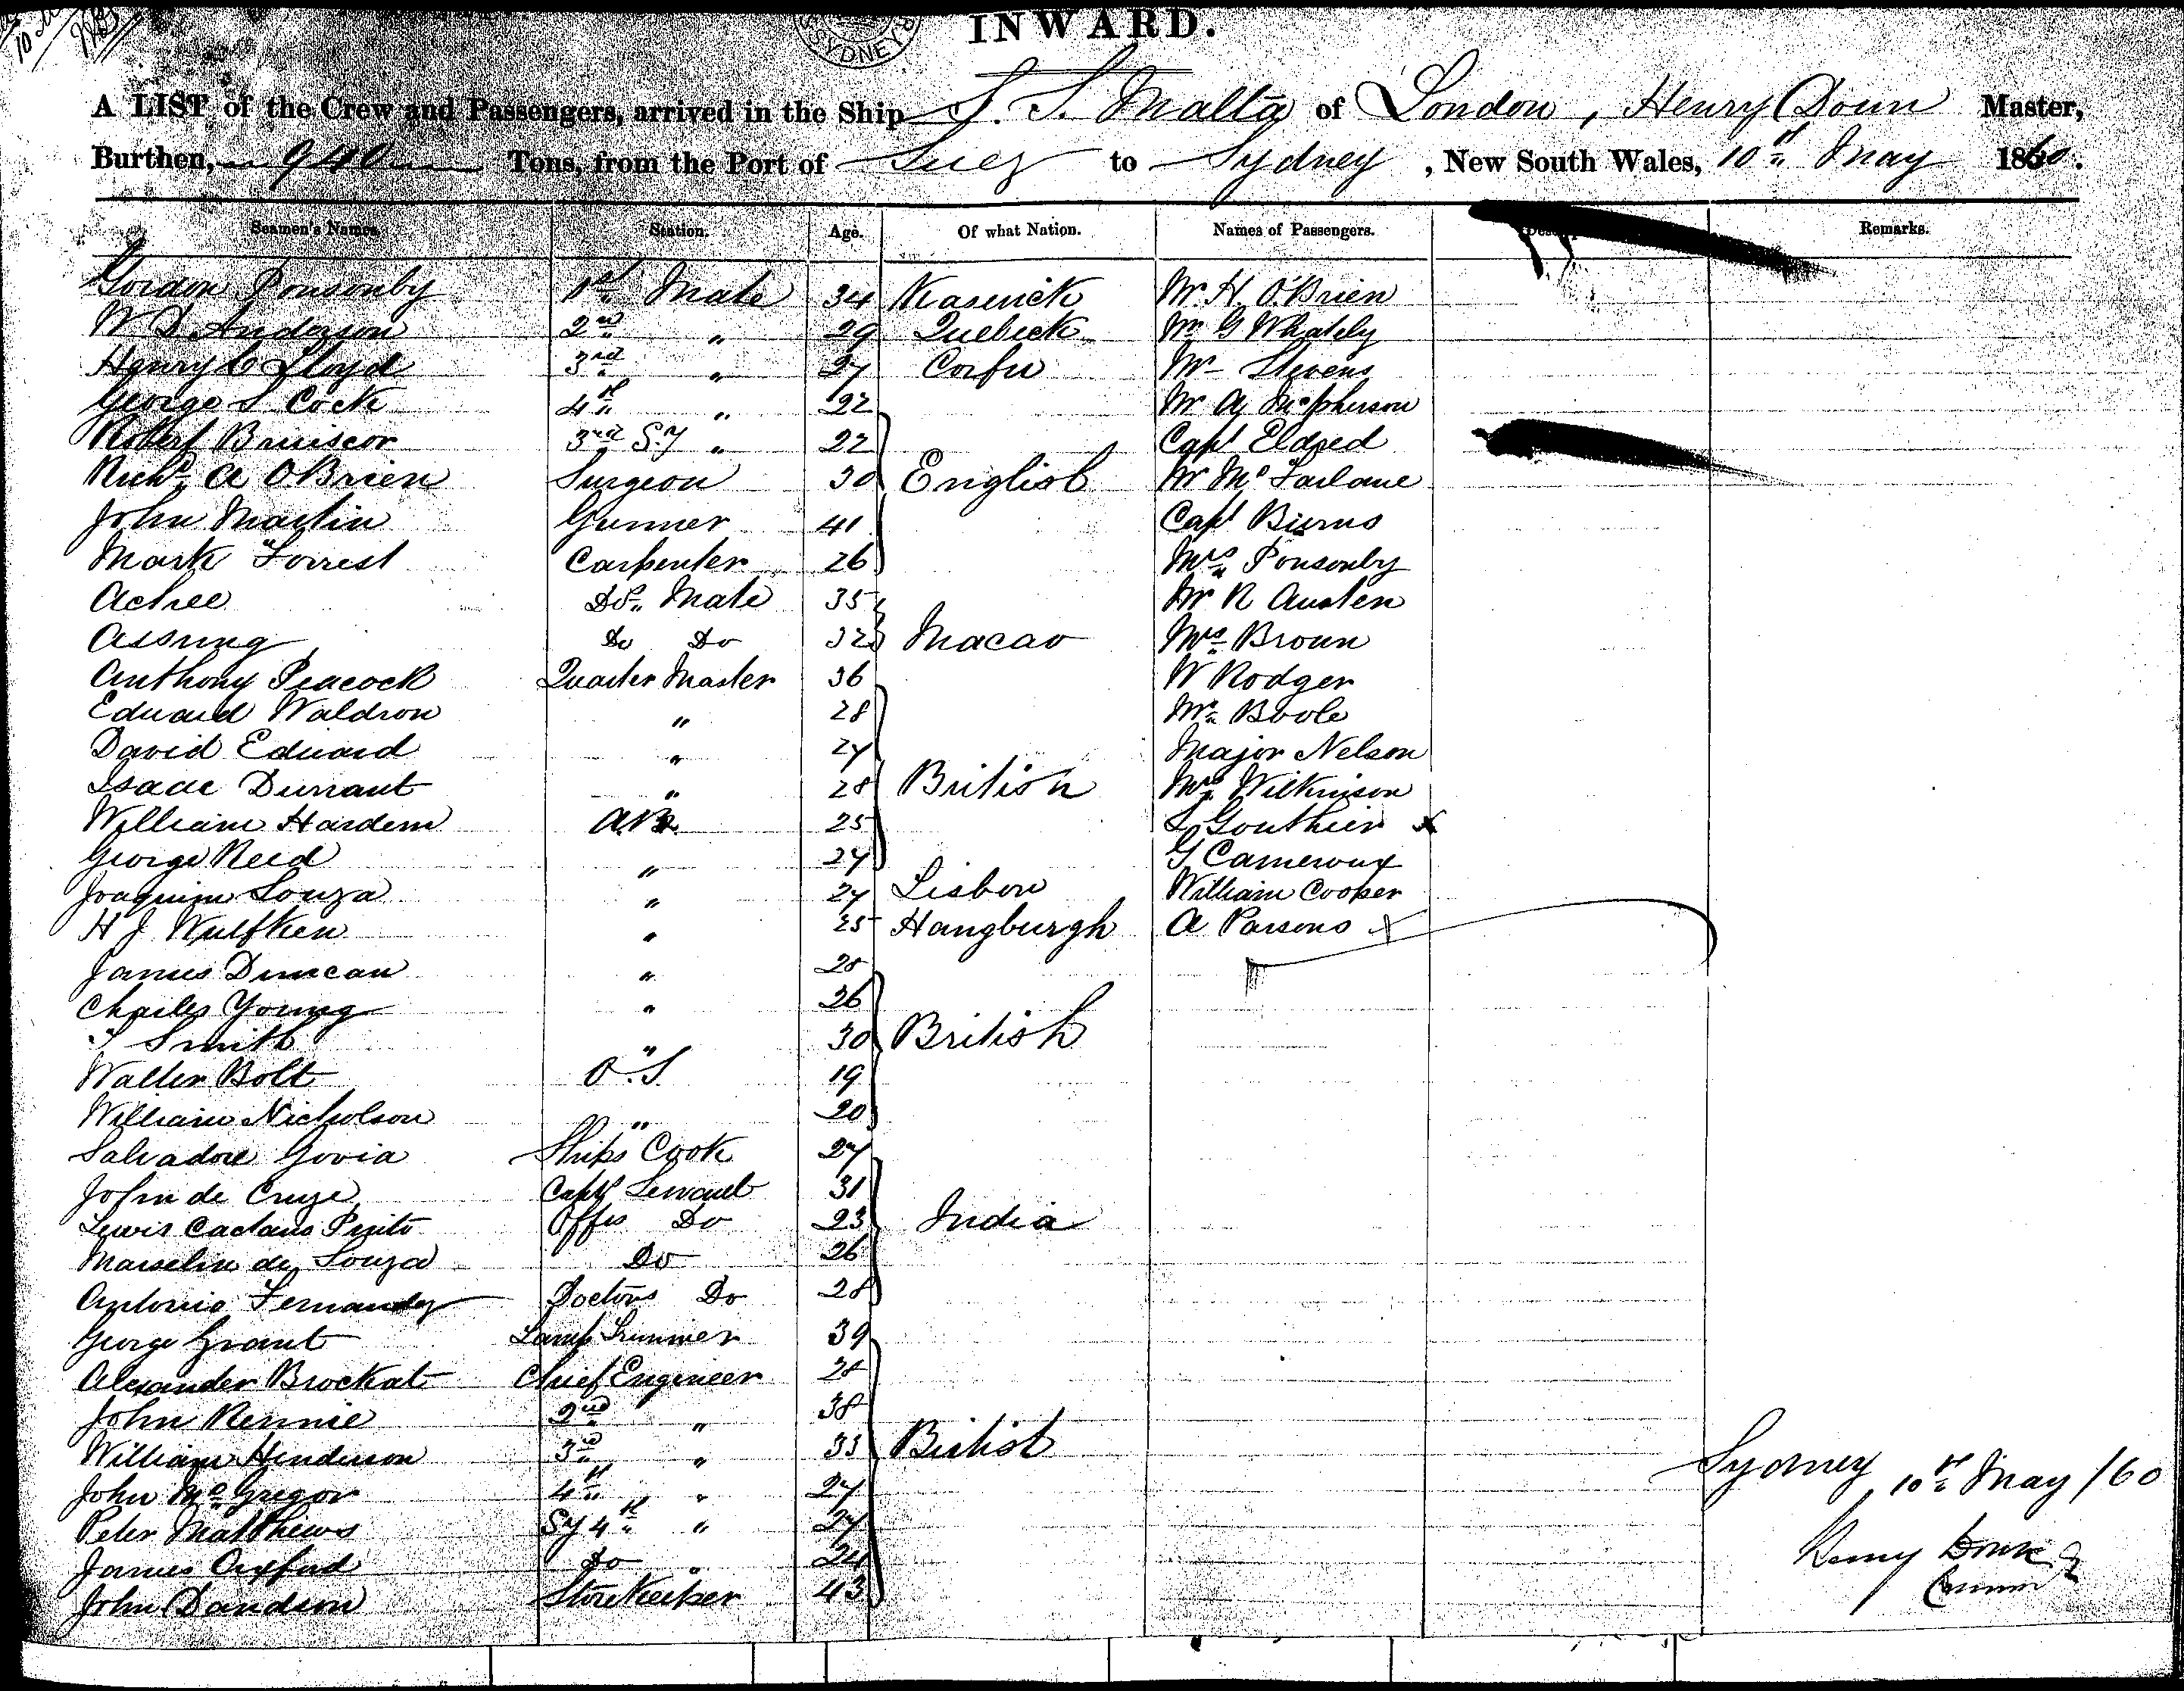 SYDNEY
INWARD.
A LIST of the Crew and Passengers, arrived in the Ship S. S. Malta of London, Henry Down Master,
Burthen, 940 Tons, from the Port of Suez to Sydney, New South Wales, 10th May 1860.
Seamen's Names. Station. Age. Of what Nation. Names of Passengers. Remarks.
Gordon Ponsonby 1st Mate 34 Mr H. O'Brien
W D Anderson 2nd " 29 Quebeck Mr G Whately
Henry C Lloyd 3rd " 27 Corfu Mr Stevens
George S Cock 4th " 22 Mr A McPherson
Robert 3rd Sy " 22 Capt Eldred
Richd A OBrien Surgeon 30 English Mr McFarlane
John Martin Gunner 41 Capt Burns
Mark Forrest Carpenter 26 Mrs Ponsonby
Achee Do Mate 35 Mr R Austen
Assung Do Do 32 Macao Mrs Broun
Anthony Peacock Quarter Master 36 W Rodger
Edward Waldron " 28 Mr Boole
David Edward " 27 Major Nelson
Isaac Durrant " 28 British Mrs Wilkinson
William Hardem A.B. 25 L Gouthier x
George Reed " 27 G Cameroux
Joaquim Souza " 27 Lisbon William Cooper
H J Wulfken " 25 Hangburgh A Parsons x
James Duncan " 28
Charles Young " 26
Smith " 30 British
Walter Bolt O.S. 19
William Nicholson " 20
Salvadore Govia Ships Cook 27
John de Cruze Capts Servant 31
Lewis Caetano Pinto Offrs Do 23 India
Marselin de Souza Do 26
Antonio Fernandez Doctors Do 28
George Grant Lamp Trimmer 39
Alexander Brockat Chief Engineer 28
John Rennie 2nd " 38
William Henderson 3rd " 33 British
John McGregor 4th " 27
Peter Matthews Sy 4th " 27
James Oxford Do " 24
John Davidson Storekeeper 43
Sydney 10th May /60
Henry Down